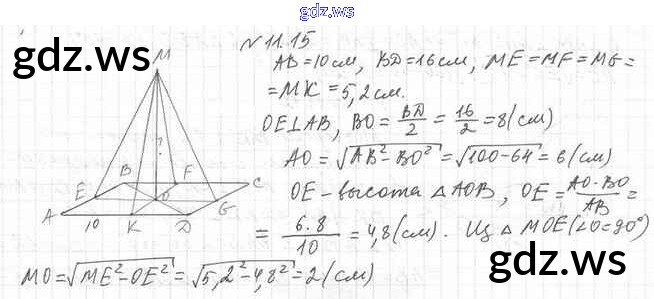 gdz.ws
gdz.ws
№ 11.15
AB = 10 см, BD = 16 см, ME = MF = MG =
= MK = 5,2 см.
OE ⊥ AB, BO = BD/2 = 16/2 = 8 (см)
AO = √(AB² - BO²) = √(100 - 64) = 6 (см)
OE - высота △ AOB, OE = AO · BO / AB =
= 6 · 8 / 10 = 4,8 (см). Из △ MOE (∠O = 90°)
MO = √(ME² - OE²) = √(5,2² - 4,8²) = 2 (см)
M
?
B F C
E O G
A 10 K D
gdz.ws